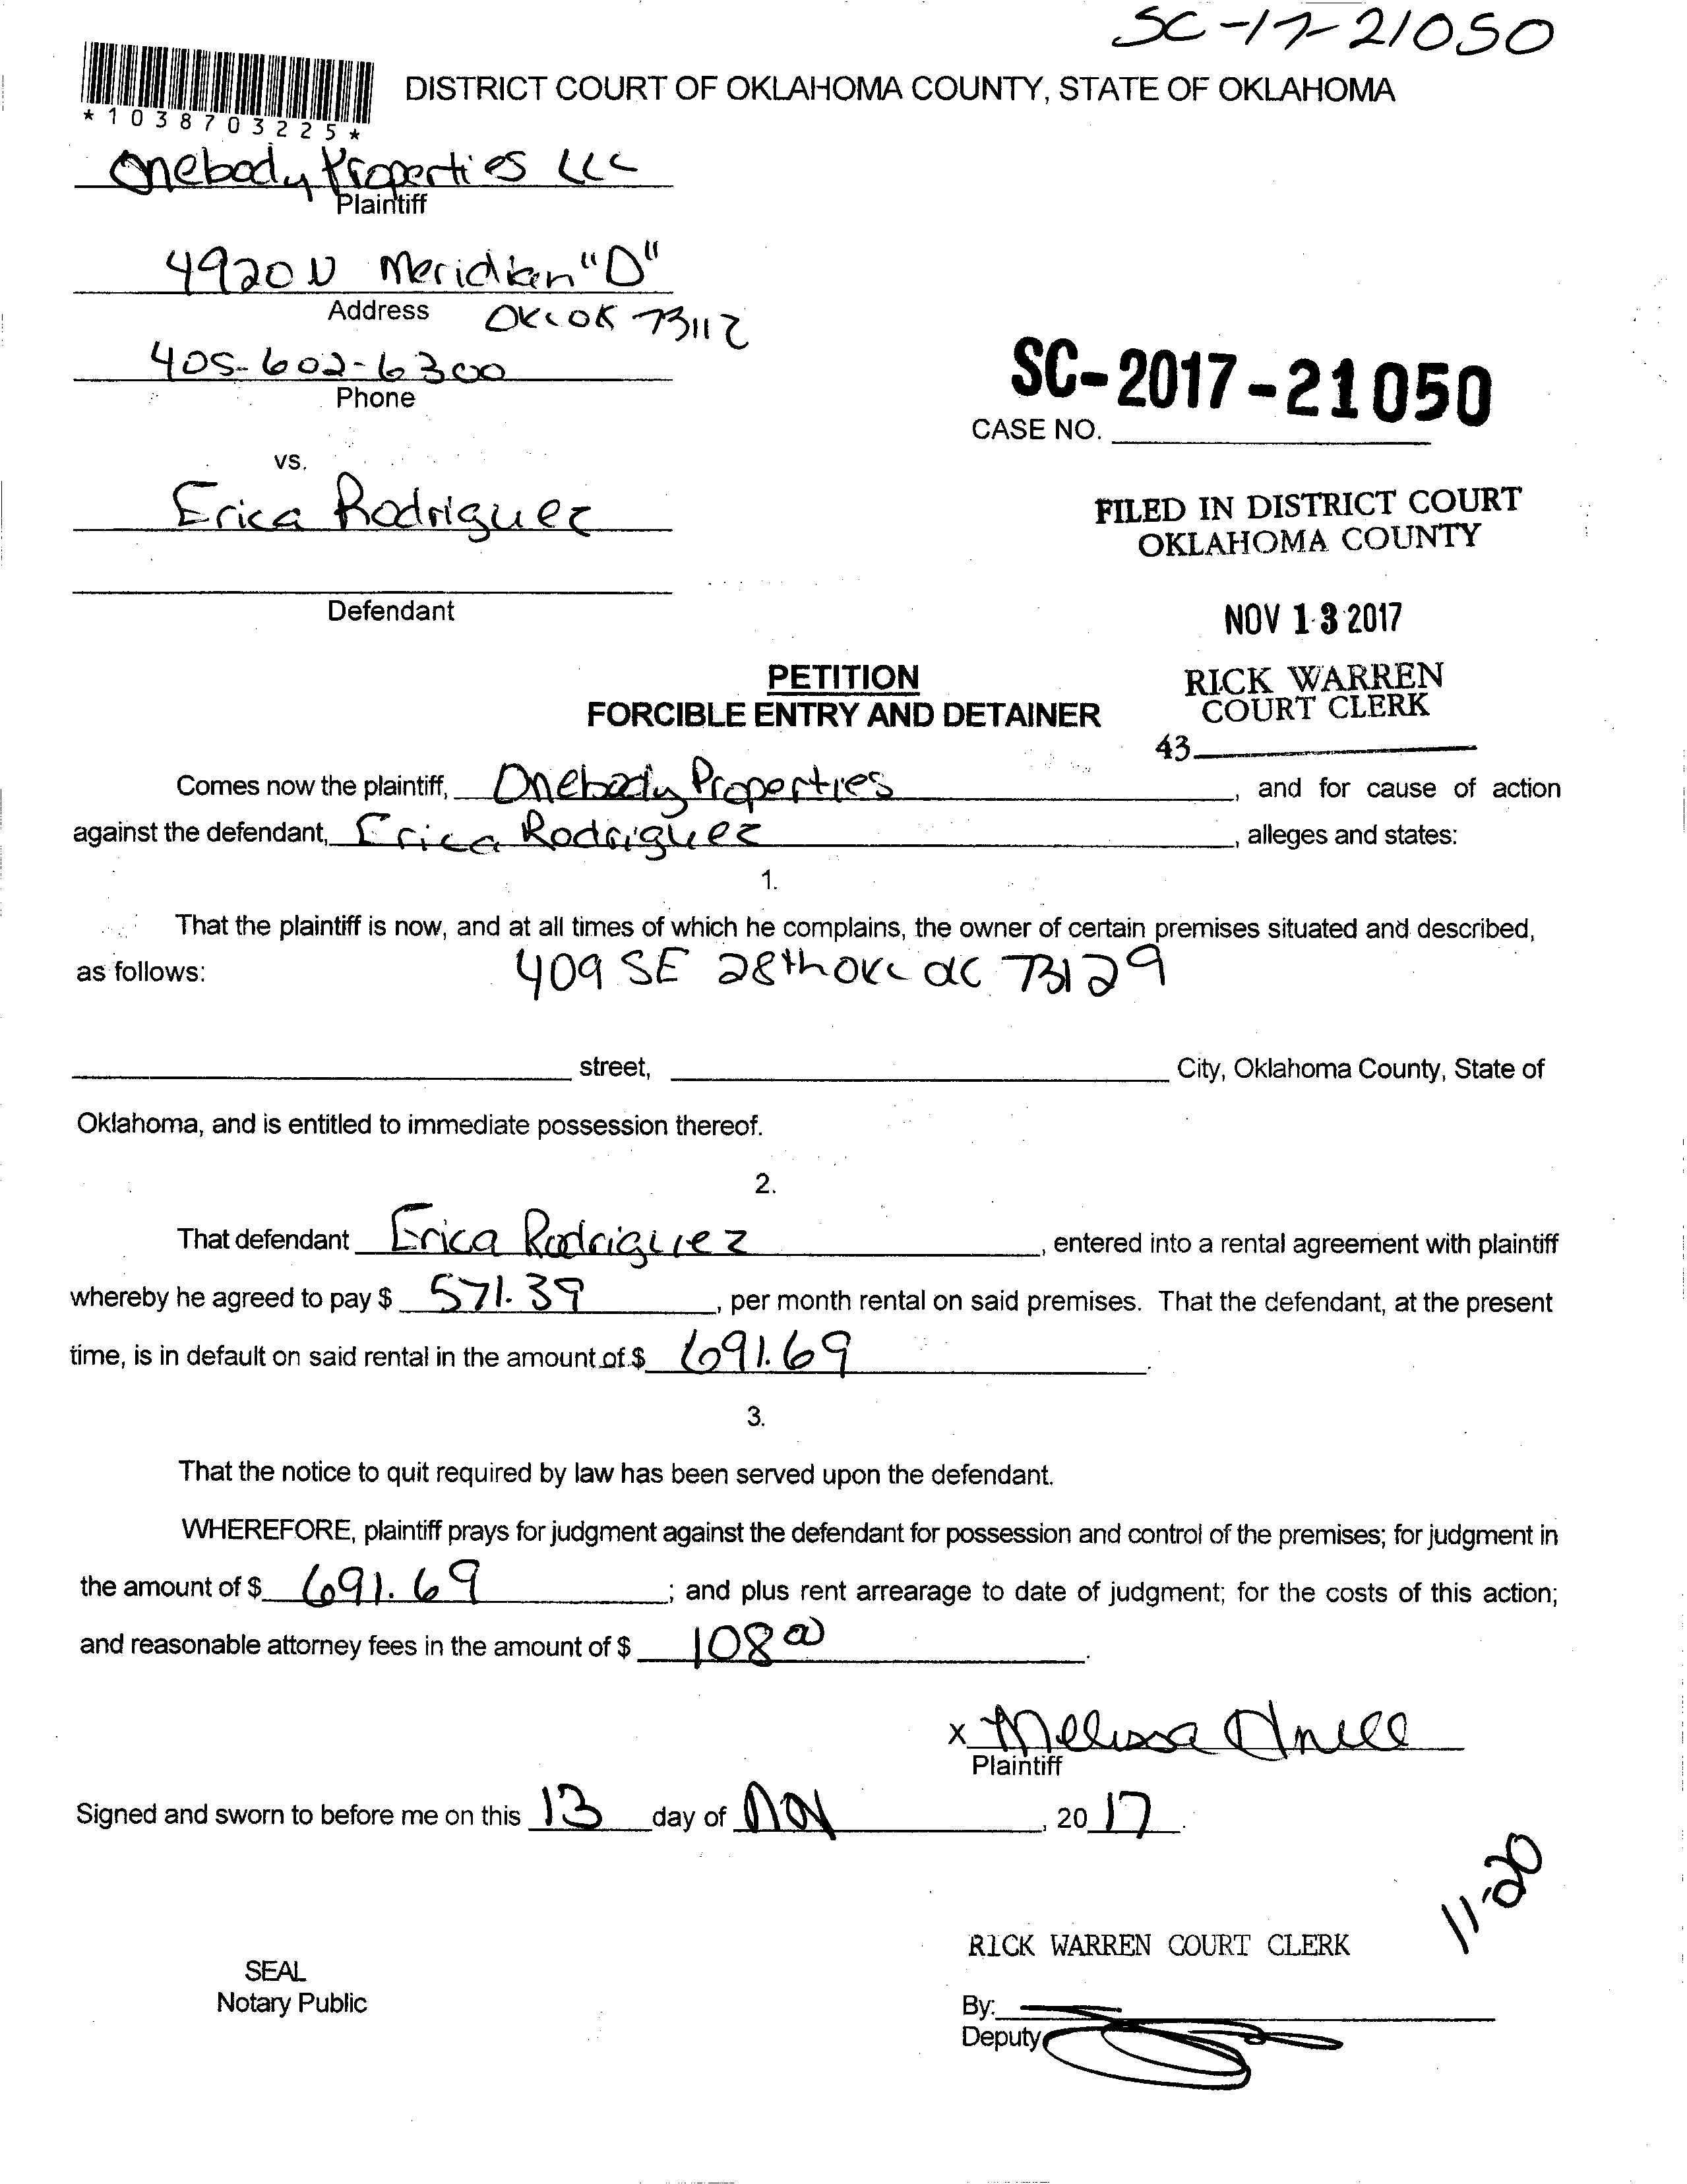 SC-17-21050
*1038703225*
DISTRICT COURT OF OKLAHOMA COUNTY, STATE OF OKLAHOMA
Onebody Properties LLC
Plaintiff
4920 N Meridian "D"
Address OKC OK 73112
405-602-6300
Phone
SC-2017-21050
CASE NO.
vs.
Erica Rodriguez
FILED IN DISTRICT COURT
OKLAHOMA COUNTY
Defendant
NOV 13 2017
PETITION
FORCIBLE ENTRY AND DETAINER
RICK WARREN
COURT CLERK
43
Comes now the plaintiff, Onebody Properties, and for cause of action
against the defendant, Erica Rodriguez, alleges and states:
1.
That the plaintiff is now, and at all times of which he complains, the owner of certain premises situated and described,
as follows: 409 SE 28th OKC OK 73129
street, City, Oklahoma County, State of
Oklahoma, and is entitled to immediate possession thereof.
2.
That defendant Erica Rodriguez, entered into a rental agreement with plaintiff
whereby he agreed to pay $ 571.39, per month rental on said premises. That the defendant, at the present
time, is in default on said rental in the amount of $ 691.69.
3.
That the notice to quit required by law has been served upon the defendant.
WHEREFORE, plaintiff prays for judgment against the defendant for possession and control of the premises; for judgment in
the amount of $ 691.69; and plus rent arrearage to date of judgment; for the costs of this action;
and reasonable attorney fees in the amount of $ 108 00.
x Melissa
Plaintiff
Signed and sworn to before me on this 13 day of Nov, 20 17.
11-20
RICK WARREN COURT CLERK
SEAL
Notary Public
By:
Deputy